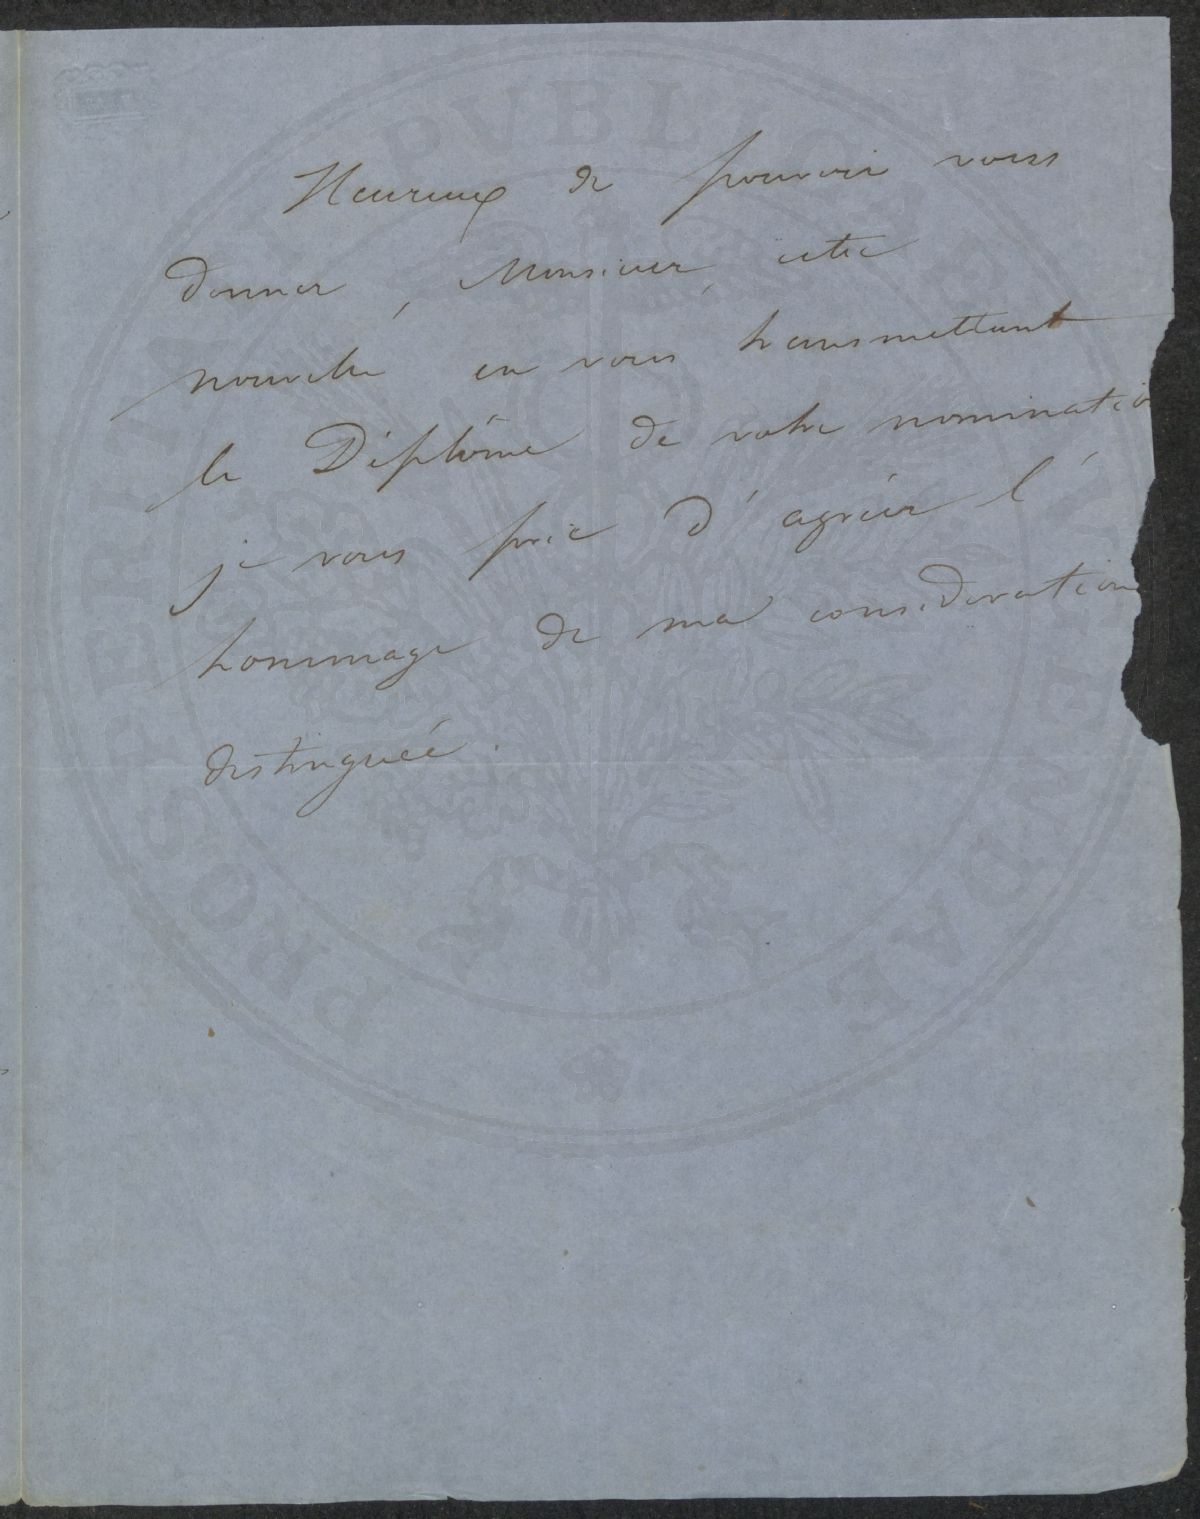 Heureux de pouvoir vous
donner, Monsieur, cette
nouvelle en vous transmettant
le Diplôme de votre nominatio
je vous prie d'agréer l'
hommage de ma consideration
distinguée.
PROSPERITATI PVBLICAE AVGENDAE